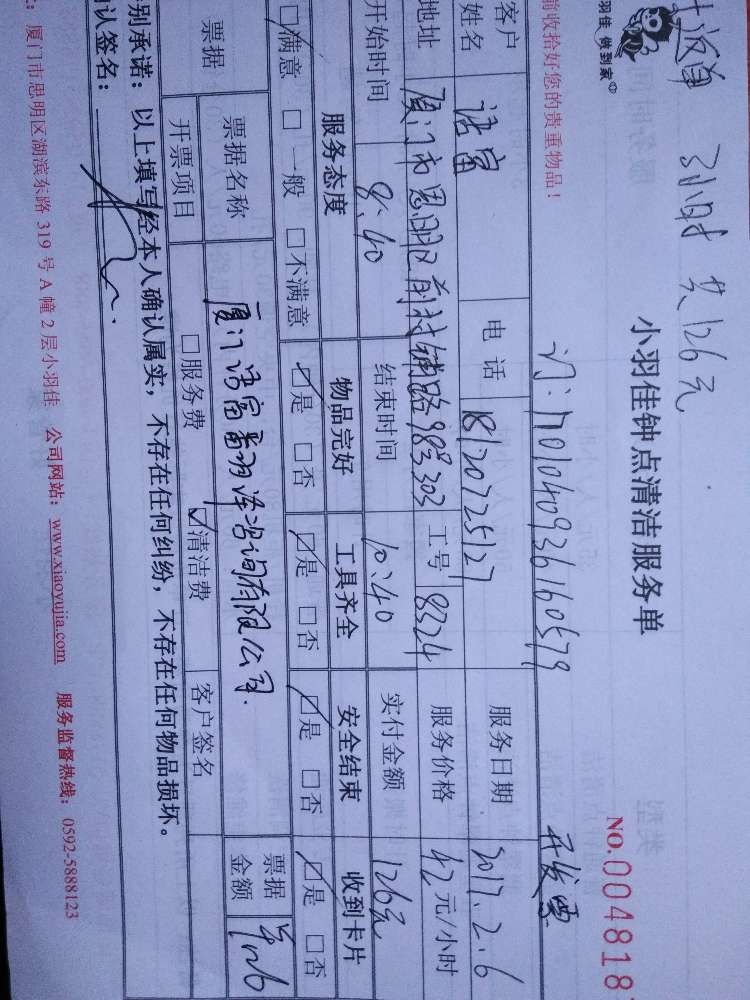 3小时 共126元
羽佳 做到家
小羽佳钟点清洁服务单
NO.004818
前收拾好您的贵重物品!
订:1701040936160579
开发票
客户姓名 语富 电话 18120725127 服务日期 2017.2.6
地址 厦门市思明区前埔路98号303 工号 8324 服务价格 42元/小时
开始时间 8:40 结束时间 10:40 实付金额 126元
服务态度 物品完好 工具齐全 安全结束 收到卡片
☑满意 □一般 □不满意 ☑是 □否 ☑是 □否 ☑是 □否 ☑是 □否
票据 票据名称 厦门语富翻译咨询有限公司. 票据金额
开票项目 □服务费 ☑清洁费 客户签名
别承诺:以上填写经本人确认属实,不存在任何纠纷,不存在任何物品损坏。
认签名:
厦门市思明区湖滨东路 319 号 A 幢 2 层小羽佳 公司网站:www.xiaoyujia.com 服务监督热线:0592-5888123